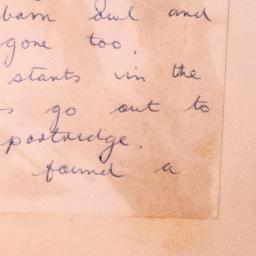 barn Owl and
gone too.
stants in the
s go out to
partridge.
found a